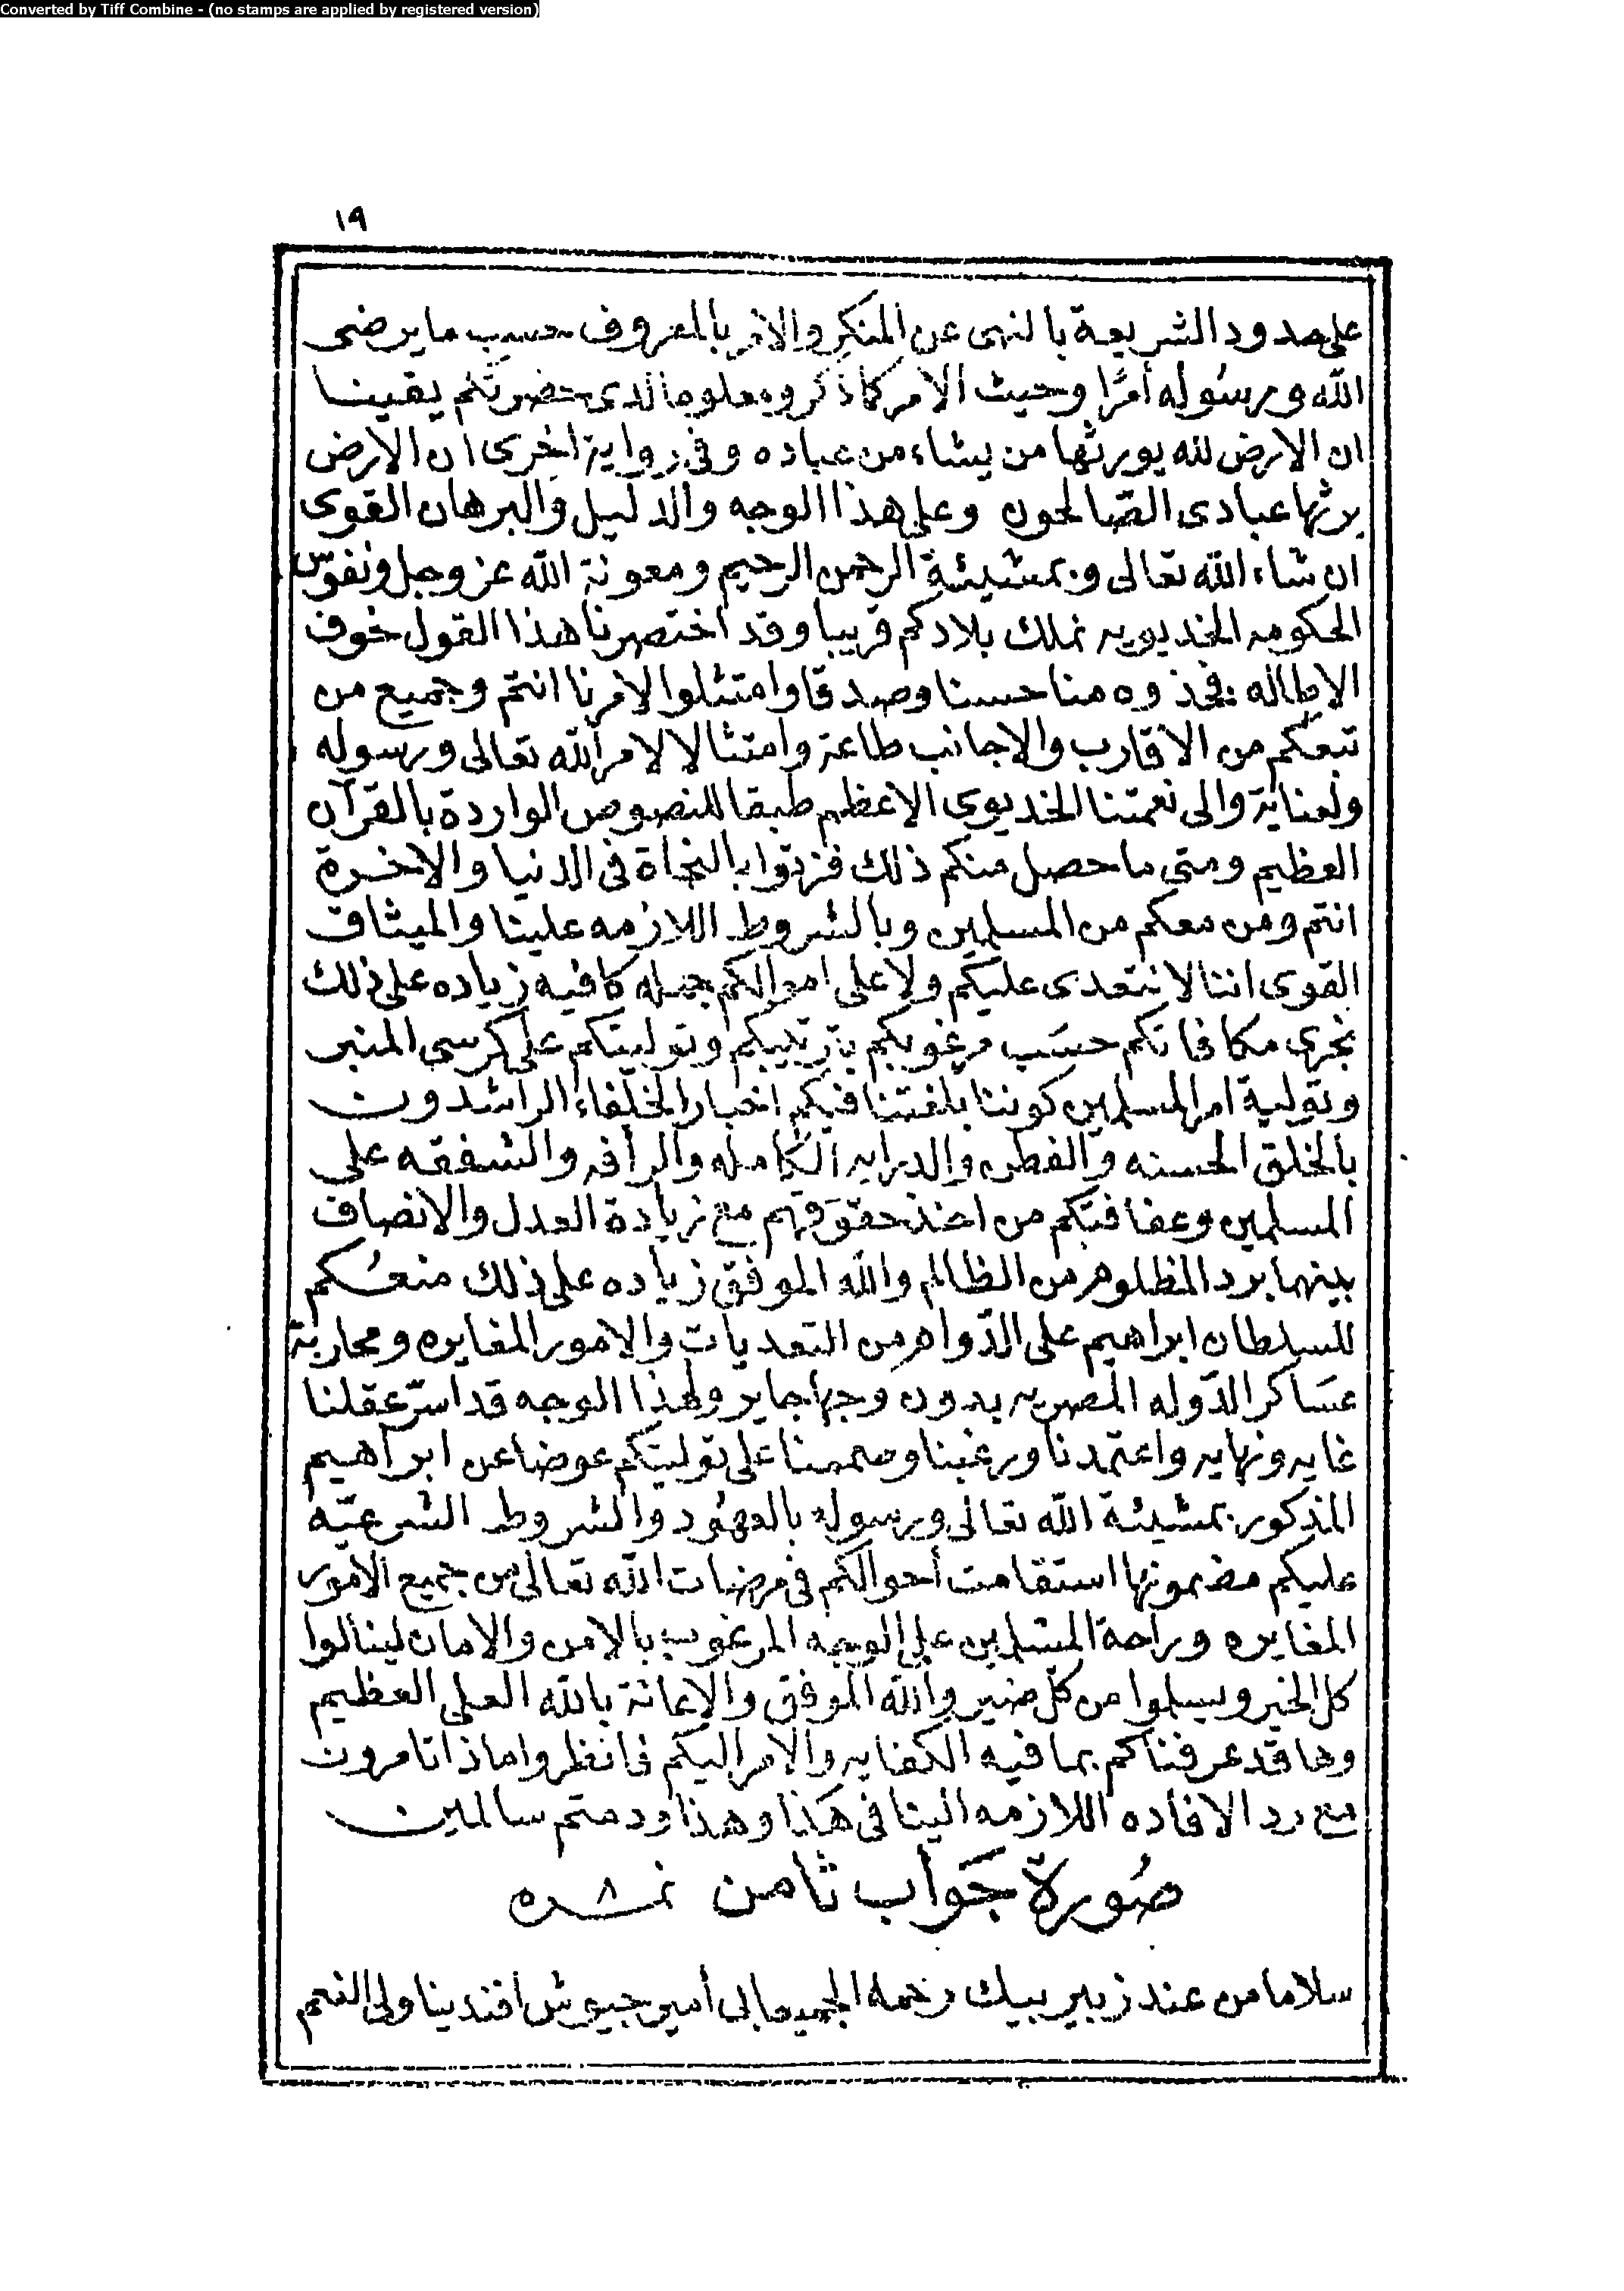 Converted by Tiff Combine - (no stamps are applied by registered version)
١٩
على حدود الشريعة بالنهى عن المنكر والامر بالمعروف حسب ما يرضى
الله ورسوله أمرًا وحيث الامر كما ذكر ومعلوما لدى حضرتكم يقينا
ان الارض لله يورثها من يشاء من عباده وفى رواية اخرى ان الارض
يرثها عبادى الصّالحون وعلى هذا الوجه والدليل والبرهان القوى
ان شاء الله تعالى وبمشيئة الرحمن الرحيم ومعونة الله عز وجل ونفوس
الحكومه الخديويه نملك بلادكم قريبا وقد اختصرنا هذا القول خوف
الاطاله فخذوه منا حسنا وصدقا وامتثلوا لامرنا انتم وجميع من
تبعكم من الاقارب والاجانب طاعة وامتثالا لامر الله تعالى ورسوله
ولعناية والى نعمتنا الخديوى الاعظم طبقا للنصوص الواردة بالقرآن
العظيم ومتى ما حصل منكم ذلك فزتوا بالنجاة فى الدنيا والاخرة
انتم ومن معكم من المسلمين وبالشروط اللازمه علينا والميثاق
القوى اننا لا نتعدى عليكم ولا على اموالكم جمله كافيه زياده على ذلك
نجرى مكافاتكم حسَب مرغوبكم بترتيبكم وتوليتكم على كرسى المنبر
وتولية امر المسلمين كوننا بلغتنا فيكم اخبار الخلفاء الراشدون
بالخلق الحسنه والفطن والدرايه الكامله والرأفه والشفقه على
المسلمين وعفافتكم من اخذ حقوقهم مع زيادة العدل والانصاف
بينها برد المظلوم من الظالم والله الموفق زياده على ذلك منعكم
للسلطان ابراهيم على الدّوام من التعديات والامور المغايره ومحاربة
عسَاكر الدّوله المصريه بدون وجها جايز ولهذا الوجه قد استرعقلنا
غايه ونهايه واعتمدنا ورغبنا وصممنا على توليتكم عوضا عن ابراهيم
المذكور بمشيئة الله تعالى ورسوله بالعهُود والشروط الشرعيّه
عليكم مضمونها استقامت أحوالكم فى مرضات الله تعالى من جميع الامور
المغايره وراحة المسلمين على الوجه المرغوب بالامن والامان لينالوا
كل الخير ويسلموا من كل ضير والله الموفق والاعانة بالله العلى العظيم
وها قد عرفناكم بما فيه الكفايه والامر اليكم فانظروا ماذا تامرون
مع رد الافاده اللازمه الينا فى هكذا وهذا ودمتم سالمين
صُورة جَوَاب ثامن نمره ٨
سلاما من عند زبير بيك رحمه الجميعابى أمير جيوش افندينا ولى النعم